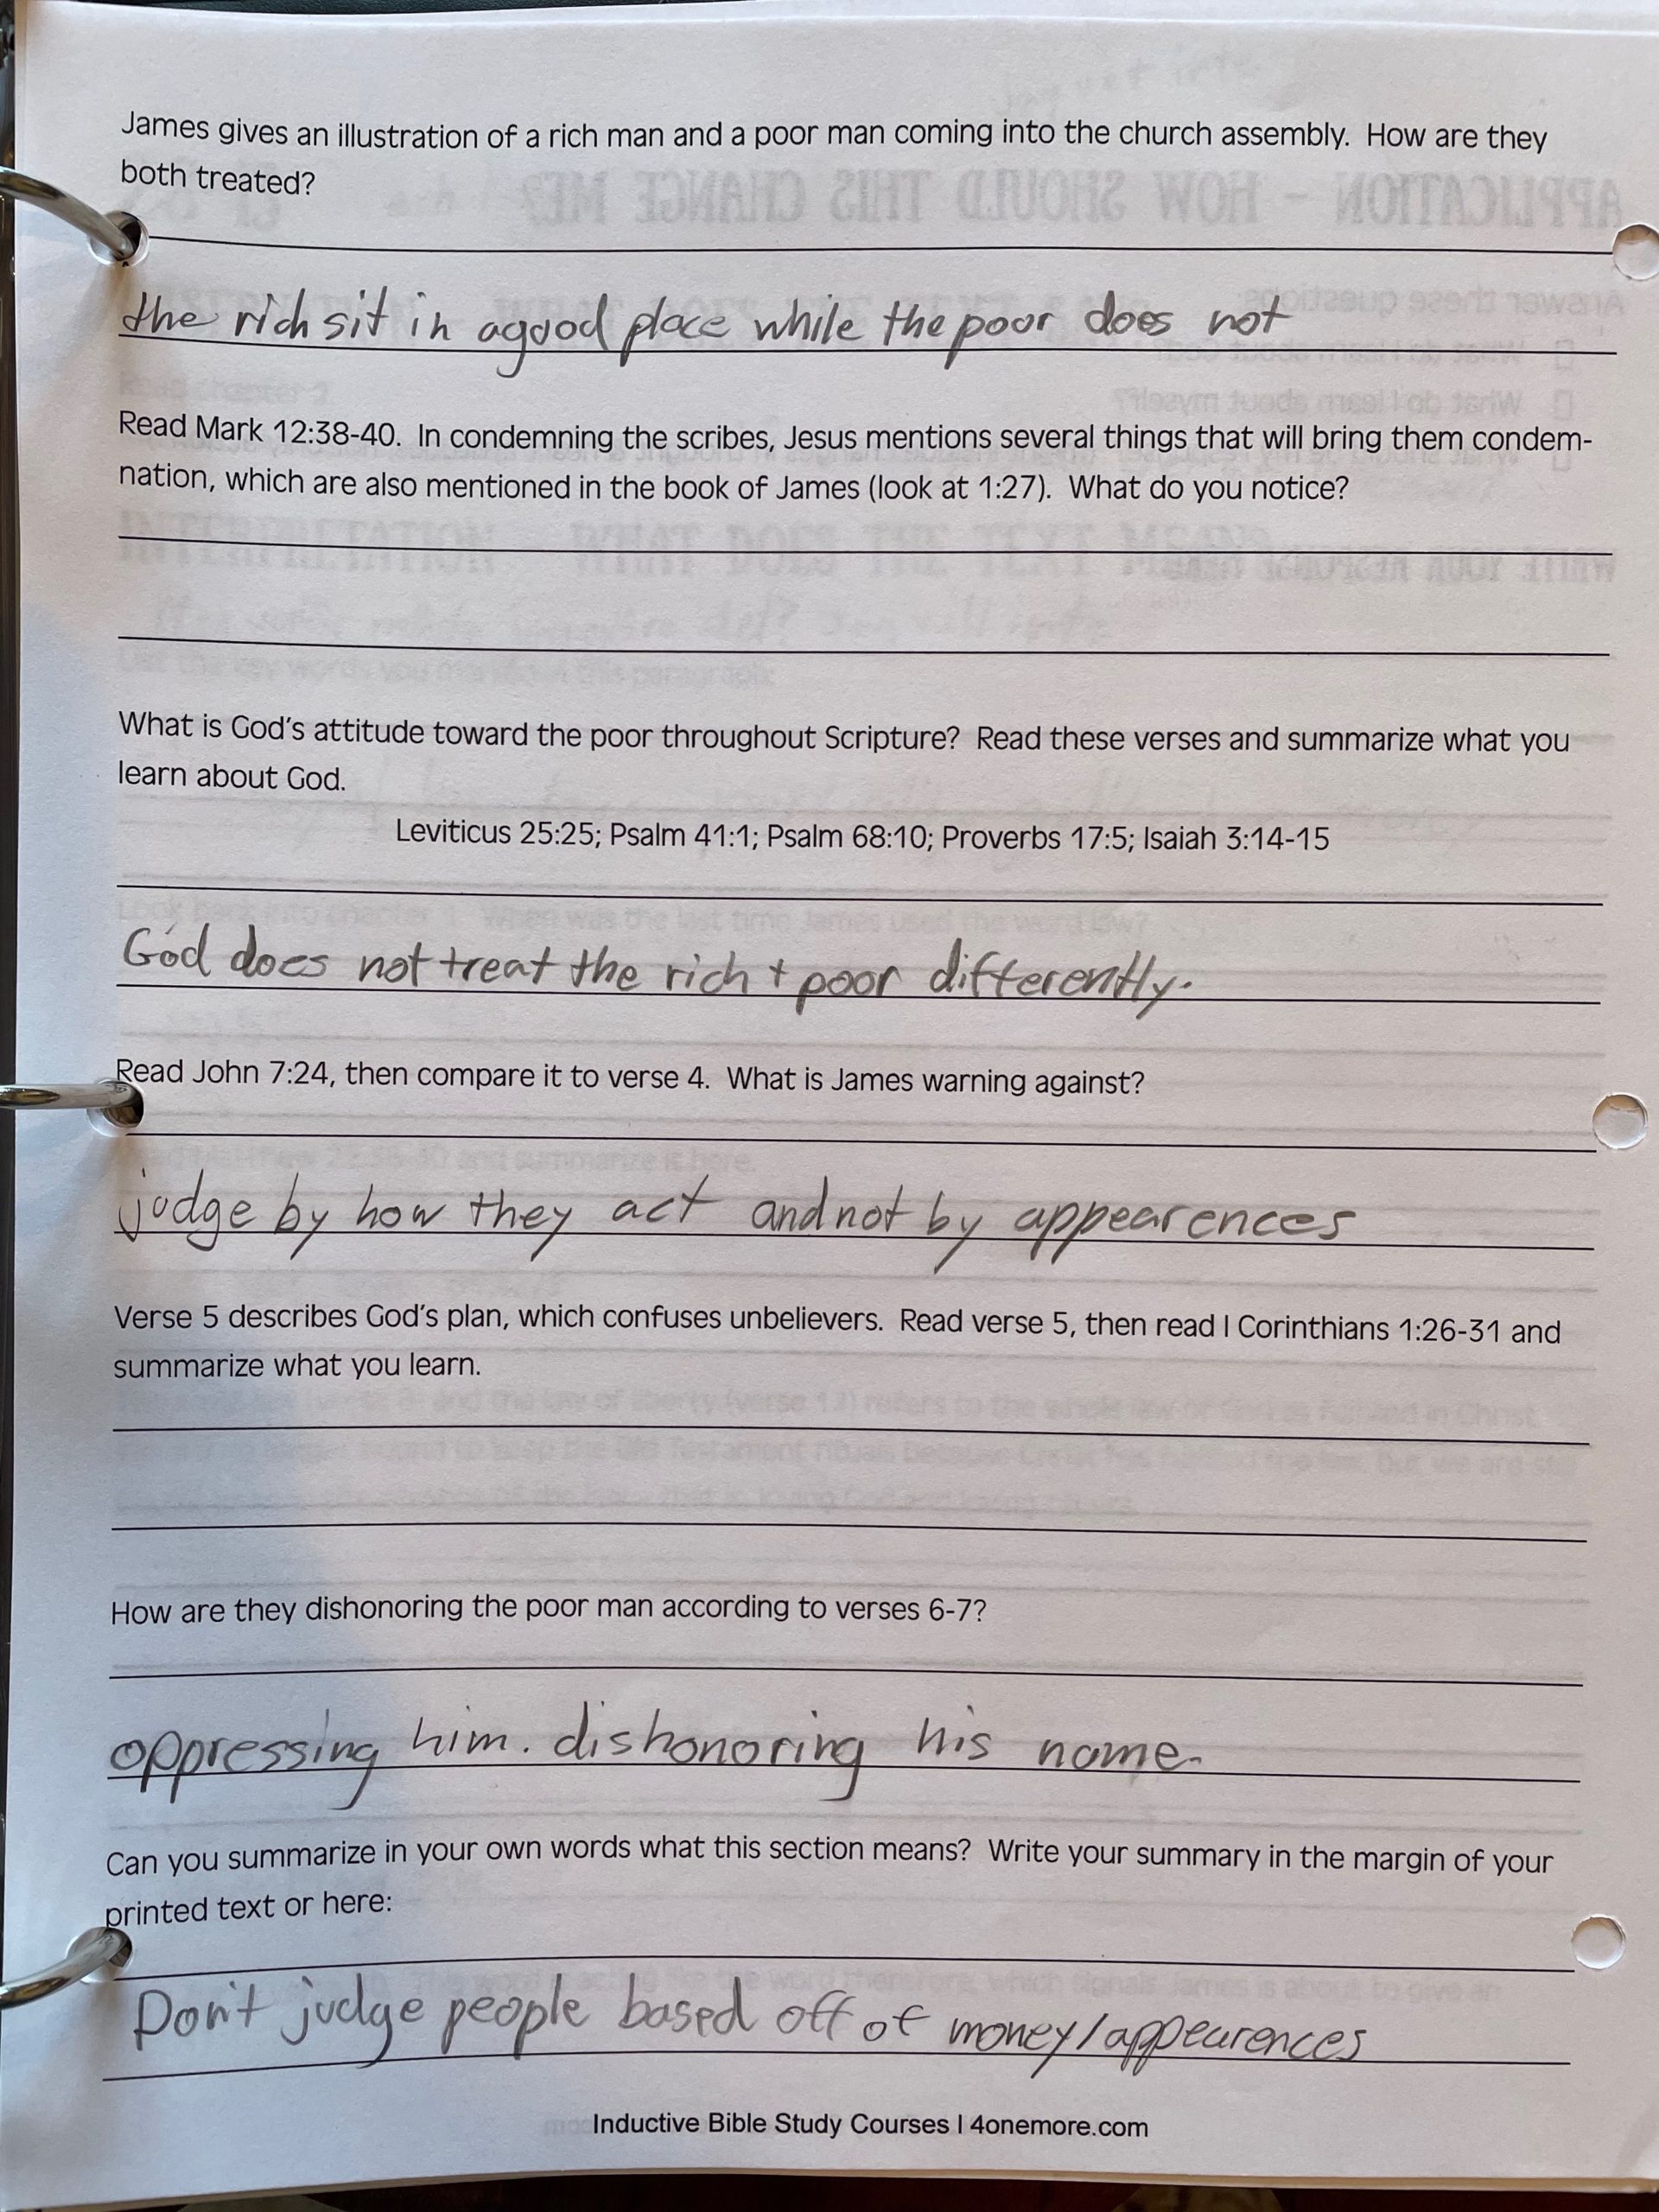 James gives an illustration of a rich man and a poor man coming into the church assembly. How are they
both treated?
the rich sit in a good place while the poor does not
Read Mark 12:38-40. In condemning the scribes, Jesus mentions several things that will bring them condem-
nation, which are also mentioned in the book of James (look at 1:27). What do you notice?
What is God's attitude toward the poor throughout Scripture? Read these verses and summarize what you
learn about God.
Leviticus 25:25; Psalm 41:1; Psalm 68:10; Proverbs 17:5; Isaiah 3:14-15
God does not treat the rich + poor differently.
Read John 7:24, then compare it to verse 4. What is James warning against?
judge by how they act and not by appearences
Verse 5 describes God's plan, which confuses unbelievers. Read verse 5, then read I Corinthians 1:26-31 and
summarize what you learn.
How are they dishonoring the poor man according to verses 6-7?
oppressing him. dishonoring his name.
Can you summarize in your own words what this section means? Write your summary in the margin of your
printed text or here:
Don't judge people based off of money/appearences
Inductive Bible Study Courses | 4onemore.com